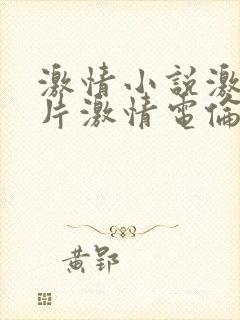 激情小說激
片激情電倫
黄郢